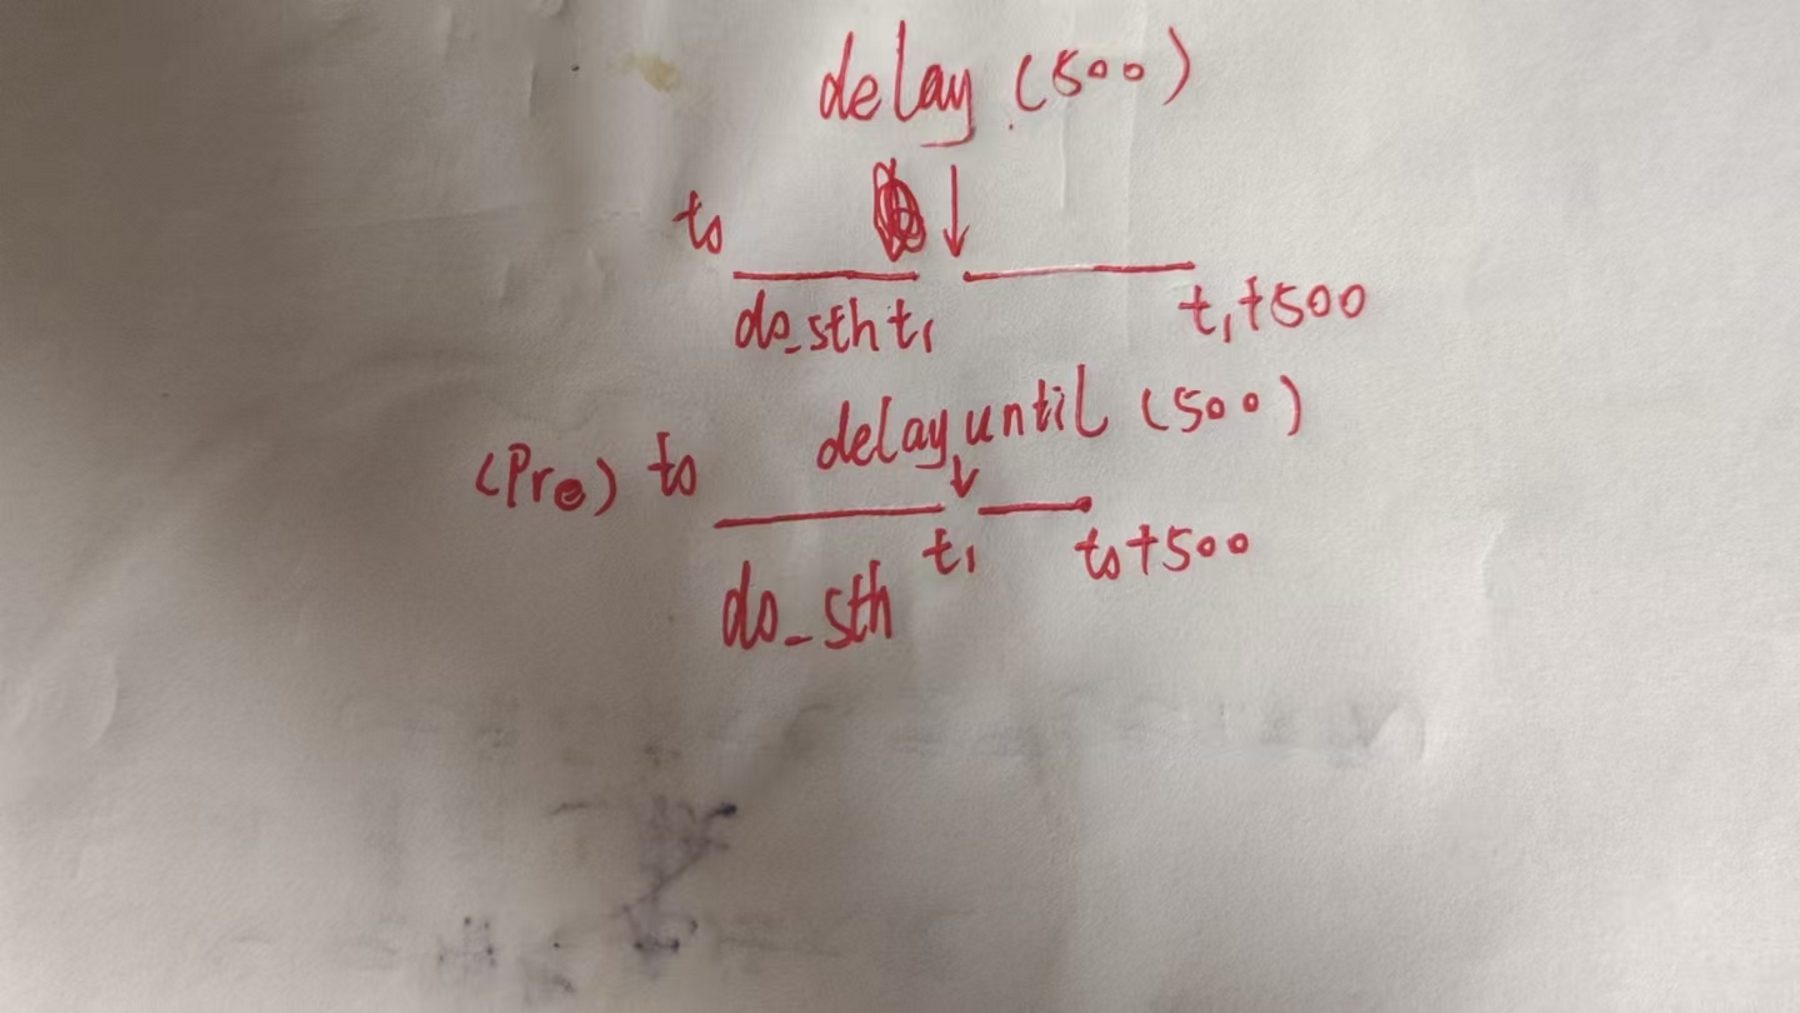 delay (500)
t0
do_sth t1
t1+500
delay until (500)
(Pre) t0
t1
t0+500
do_sth